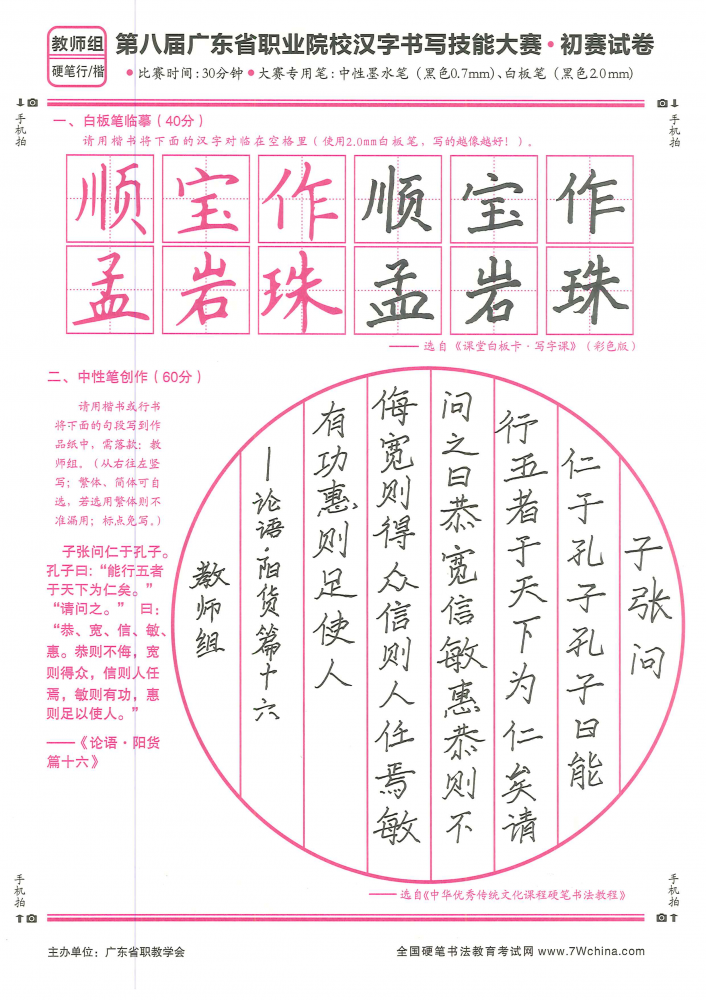 教师组
硬笔行/楷
第八届广东省职业院校汉字书写技能大赛·初赛试卷
●比赛时间:30分钟●大赛专用笔:中性墨水笔（黑色0.7mm）、白板笔（黑色2.0mm）
手机拍
手机拍
一、白板笔临摹（40分）
请用楷书将下面的汉字对临在空格里（使用2.0mm白板笔，写的越像越好！）。
顺宝作顺宝作
孟岩珠孟岩珠
——选自《课堂白板卡·写字课》（彩色版）
二、中性笔创作（60分）
请用楷书或行书
将下面的句段写到作
品纸中，需落款：教
师组。（从右往左竖
写；繁体、简体可自
选，若选用繁体则不
准漏用；标点免写。）
子张问仁于孔子。
孔子曰：“能行五者
于天下为仁矣。”
“请问之。”曰：
“恭、宽、信、敏、
惠。恭则不侮，宽
则得众，信则人任
焉，敏则有功，惠
则足以使人。”
——《论语·阳货
篇十六》
子张问
仁于孔子孔子曰能
行五者于天下为仁矣请
问之曰恭宽信敏惠恭则不
侮宽则得众信则人任焉敏
有功惠则足使人
—论语·阳货篇十六
教师组
——选自《中华优秀传统文化课程硬笔书法教程》
手机拍
手机拍
主办单位：广东省职教学会
全国硬笔书法教育考试网 www.7Wchina.com